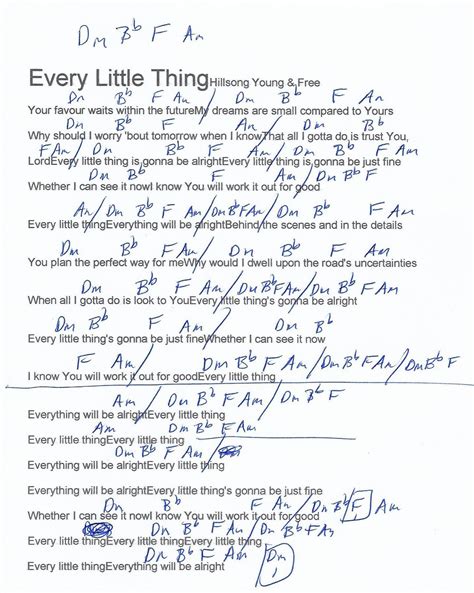 Dm Bb F Am
Every Little Thing Hillsong Young & Free
Dm Bb F Am / Dm Bb F Am
Your favour waits within the futureMy dreams are small compared to Yours
Dm Bb F Am / Dm Bb
Why should I worry 'bout tomorrow when I knowThat all I gotta do is trust You,
F Am / Dm Bb F Am / Dm Bb F
LordEvery little thing is gonna be alrightEvery little thing is gonna be just fine
Dm Bb F Am / Dm Bb F
Whether I can see it nowI know You will work it out for good
Am / Dm Bb F Am / Dm Bb F Am / Dm Bb F
Every little thingEverything will be alrightBehind the scenes and in the details
Dm Bb F Am / Dm Bb F
You plan the perfect way for meWhy would I dwell upon the road's uncertainties
Am / Dm Bb F Am / Dm Bb F Am
When all I gotta do is look to YouEvery little thing's gonna be alright
Dm Bb F Am /
Every little thing's gonna be just fineWhether I can see it now
F Am / Dm Bb F Am / Dm Bb F Am / Dm Bb F
I know You will work it out for goodEvery little thing
Am / Dm Bb F Am / Dm Bb F
Everything will be alrightEvery little thing
Am Dm Bb F Am
Every little thingEvery little thing
Dm Bb F Am /
Everything will be alrightEvery little thing
Everything will be alrightEvery little thing's gonna be just fine
Dm Bb F Am / Dm Bb F Am
Whether I can see it nowI know You will work it out for good
Dm Bb F Am / Dm Bb F Am
Every little thingEvery little thingEvery little thing
Dm Bb F Am Dm
Every little thingEverything will be alright